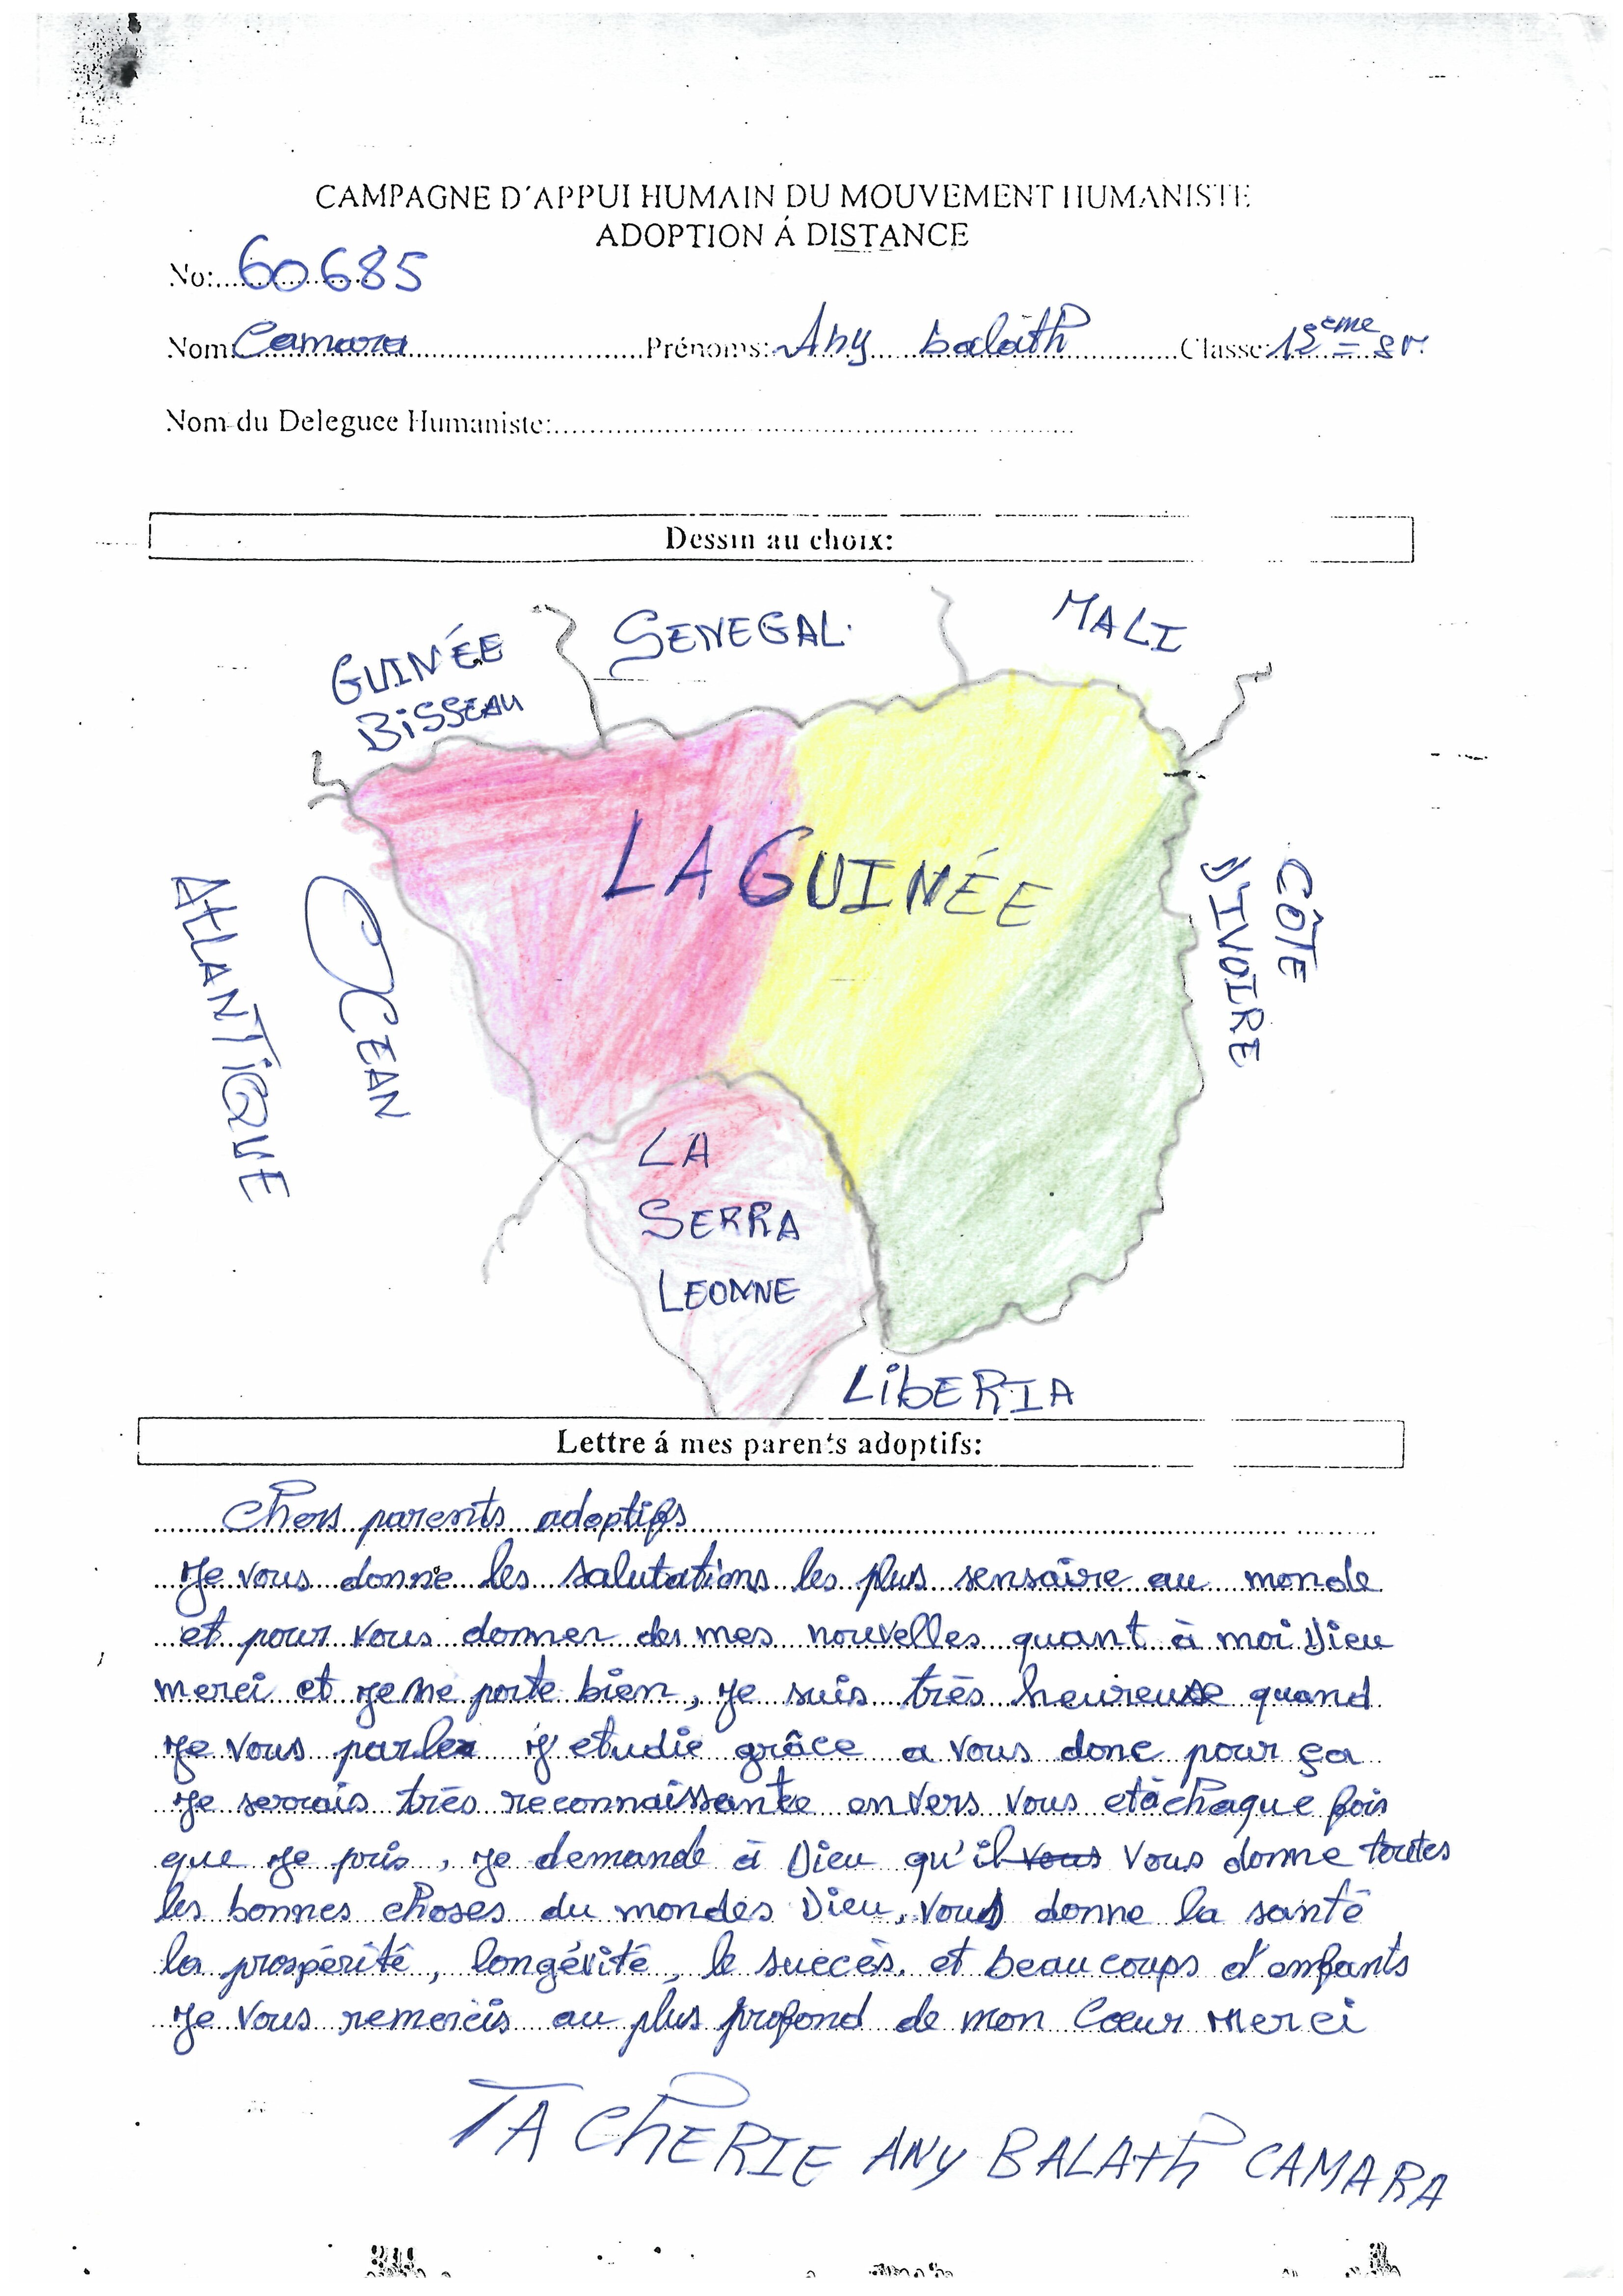 CAMPAGNE D'APPUI HUMAIN DU MOUVEMENT HUMANISTE
ADOPTION Á DISTANCE
No: 60685
Nom: Camara Prénoms: Any balath Classe: 12ème
Nom du Deleguee Humaniste:
Dessin au choix:
GUINÉE
BISSEAU
SENEGAL
MALI
LA GUINÉE
CÔTE
D'IVOIRE
OCEAN
ATLANTIQUE
LA
SERRA
LEONNE
LIBERIA
Lettre á mes parents adoptifs:
Chers parents adoptifs
Je vous donne les salutations les plus sensaire au monde
et pour vous donner des mes nouvelles quant à moi Dieu
merci et je me porte bien, je suis très heureuse quand
je vous parler j'etudie grâce a vous donc pour ça
je serrais très reconnaissante envers vous et à chaque fois
que je pris, je demande à Dieu qu'il vous vous donne toutes
les bonnes choses du mondes Dieu, vous donne la santé
la prospérité, longévité, le succès. et beaucoups d'enfants
je vous remercis au plus profond de mon Coeur Merci
TA CHERIE ANY BALATH CAMARA